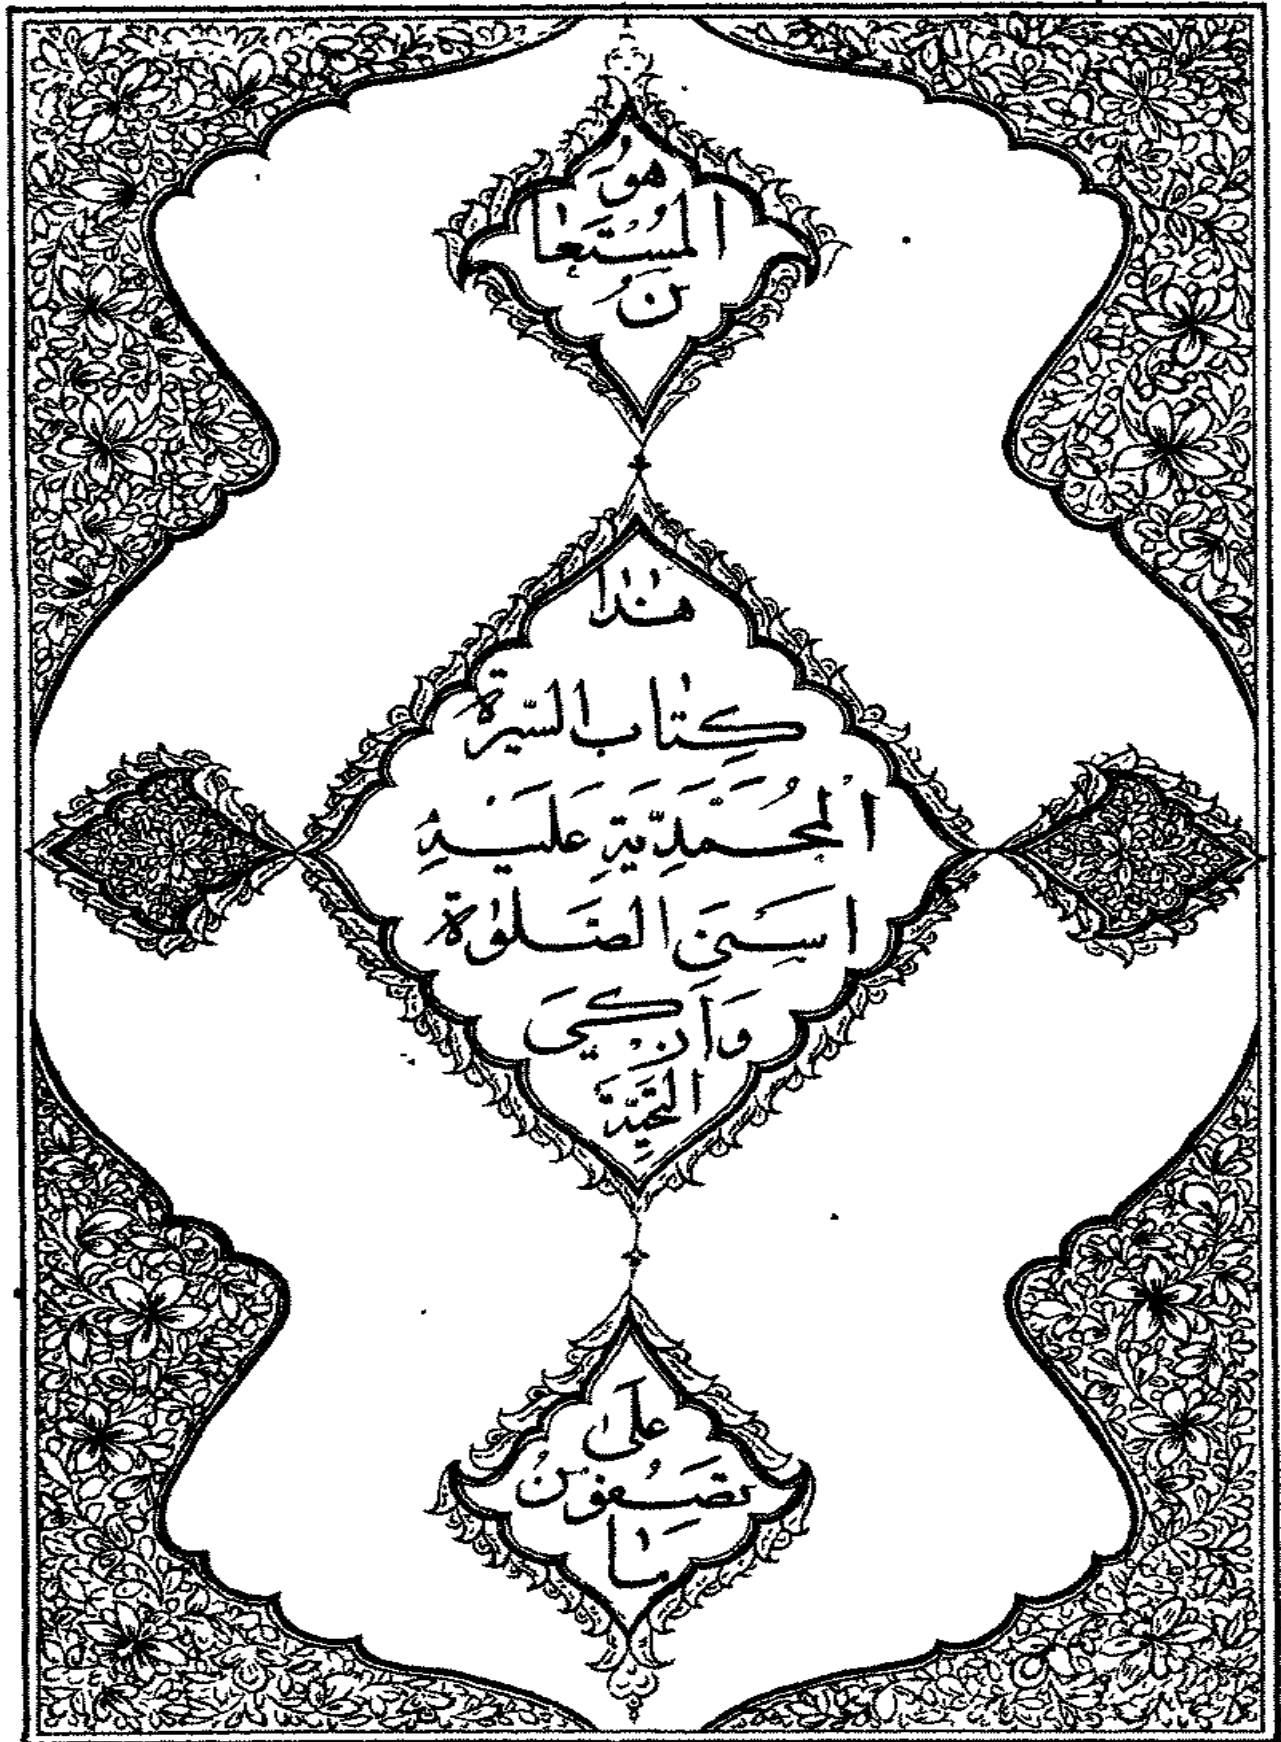 هُوَ
المُسْتَعَا
نُ
هٰذا
كِتٰاب السّيرَة
المُحَمَّدِيَّةِ عَلَيْهِ
اَسْنَى الصَّلوٰة
وَاَزْكَى
التَّحِيَّة
عَلىٰ
تَصِفُونَ
مٰا